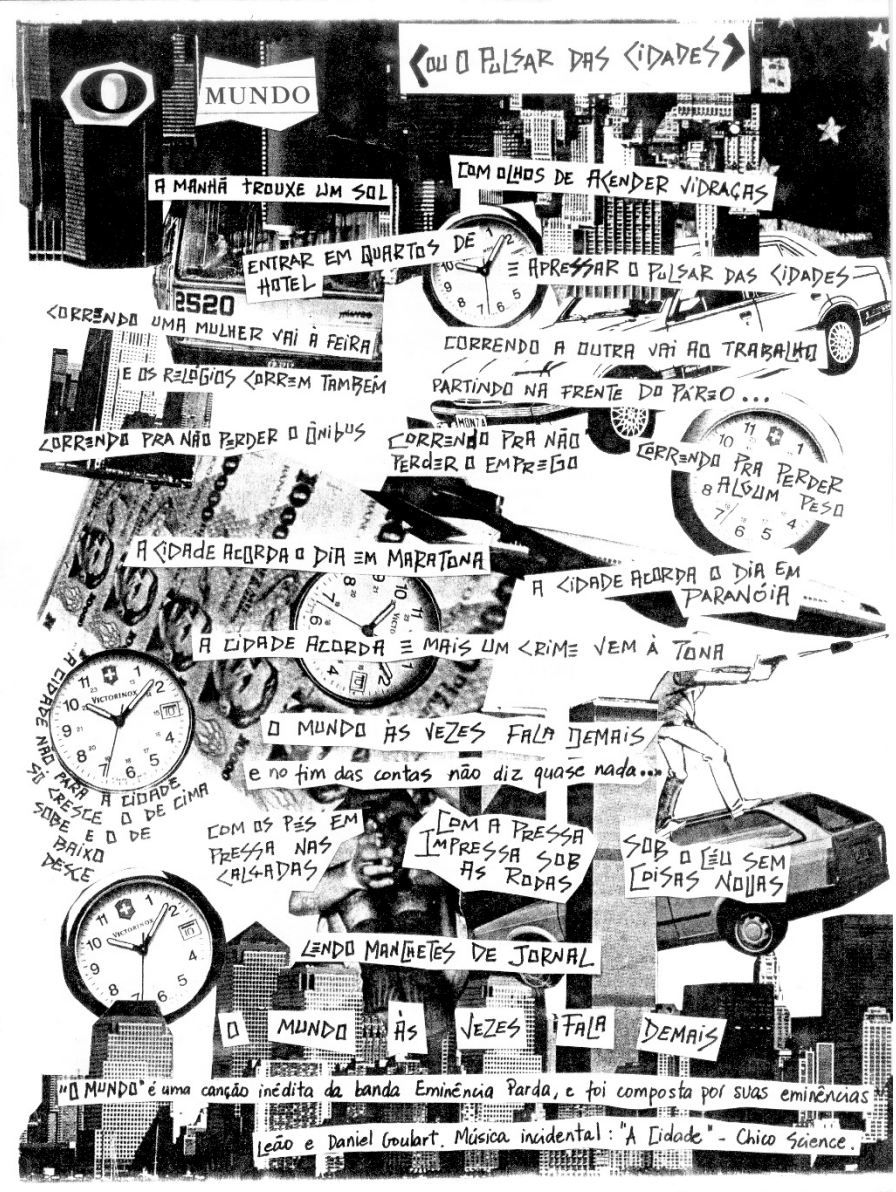 O MUNDO
<OU O PULSAR DAS CIDADES>
A MANHÃ TROUXE UM SOL
COM OLHOS DE ACENDER VIDRAÇAS
ENTRAR EM QUARTOS DE
HOTEL
E APRESSAR O PULSAR DAS CIDADES
2520
CORRENDO UMA MULHER VAI À FEIRA
CORRENDO A OUTRA VAI AO TRABALHO
E OS RELOGIOS CORREM TAMBÉM
PARTINDO NA FRENTE DO PÁREO...
CORRENDO PRA NÃO PERDER O ÔNIBUS
CORRENDO PRA NÃO
PERDER O EMPREGO
CORRENDO PRA PERDER
ALGUM PESO
A CIDADE ACORDA O DIA EM MARATONA
A CIDADE ACORDA O DIA EM
PARANÓIA
A CIDADE ACORDA E MAIS UM CRIME VEM À TONA
VICTORINOX
A CIDADE NÃO PARA A CIDADE
SÓ CRESCE O DE CIMA
SOBE E O DE
BAIXO
DESCE
O MUNDO ÀS VEZES FALA DEMAIS
e no fim das contas não diz quase nada...
COM OS PÉS EM
PRESSA NAS
CALSADAS
COM A PRESSA
IMPRESSA SOB
AS RODAS
SOB O CÉU SEM
COISAS NOVAS
VICTORINOX
LENDO MANCHETES DE JORNAL
O MUNDO ÀS VEZES FALA DEMAIS
"O MUNDO" é uma canção inédita da banda Eminência Parda, e foi composta por suas eminências
Leão e Daniel Goulart. Música incidental: "A Cidade" - Chico Science.